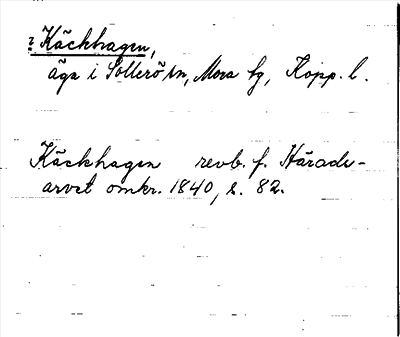 ? Käckhagen,
äga i Sollerö sn, Mora tg, Kopp. l.
Käckhagen revb. f. Härads-
arvet omkr. 1840, s. 82.